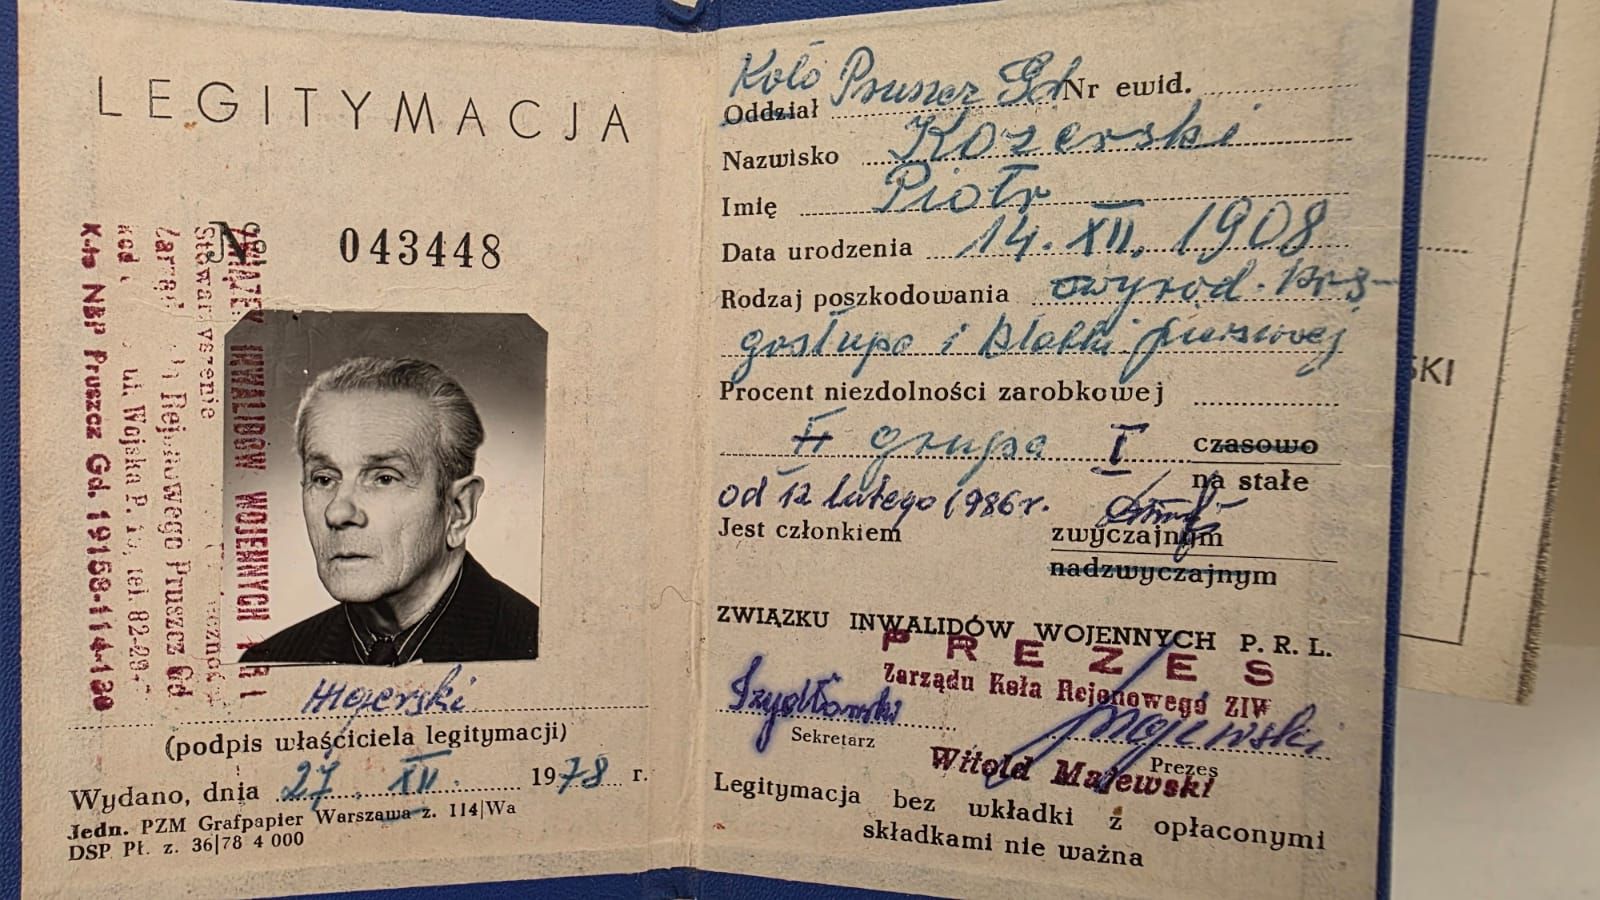 LEGITYMACJA
№ 043448
ZWIĄZEK INWALIDÓW WOJENNYCH PRL
Stowarzyszenie
Rejonowego Pruszcz Gd
ul. Wojska P. tel. 82-29
K-to NBP Pruszcz Gd. 19158-114-130
(podpis właściciela legitymacji)
Wydano, dnia 27. XII. 1978 r.
Jedn. PZM Grafpapier Warszawa z. 114|Wa
DSP Pł. z. 36|78 4 000
Koło Pruszcz Gd Nr ewid.
Oddział
Nazwisko Kozerski
Imię Piotr
Data urodzenia 14. XII. 1908
Rodzaj poszkodowania zwyrod. krę-
gosłupa i klatki piersiowej
Procent niezdolności zarobkowej
II grupa I czasowo
na stałe
od 12 lutego 1986r.
Jest członkiem zwyczajnym
nadzwyczajnym
ZWIĄZKU INWALIDÓW WOJENNYCH P. R. L.
PREZES
Zarządu Koła Rejonowego ZIW
Szydłowski Majewski
Sekretarz Prezes
Witold Majewski
Legitymacja bez wkładki z opłaconymi
składkami nie ważna
SKI